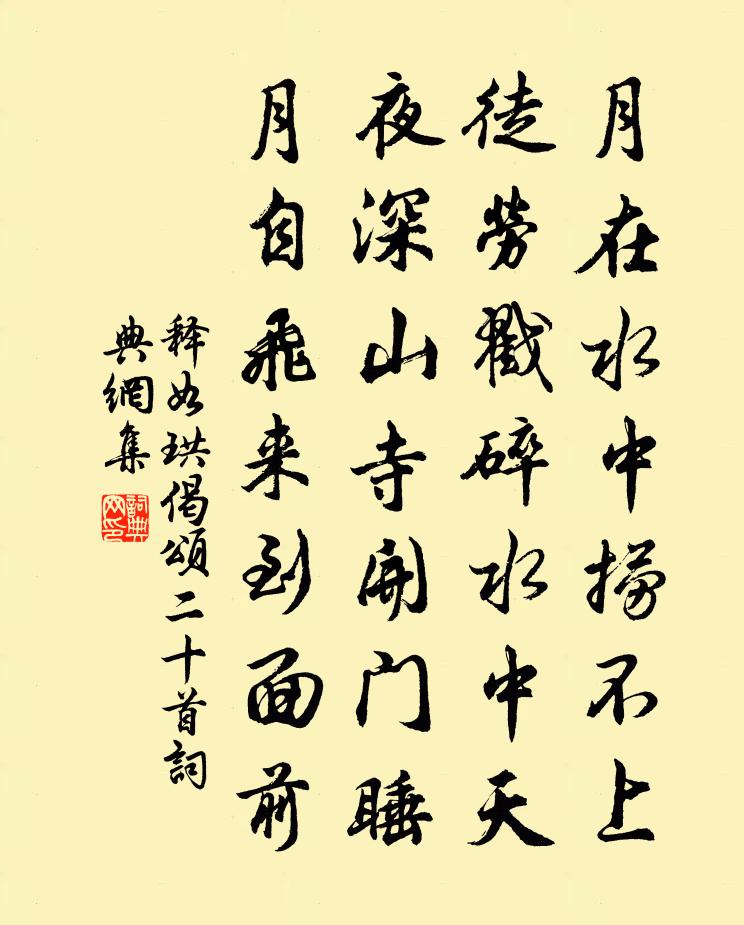 月在水中撈不上
徒勞戳碎水中天
夜深山寺開門睡
月自飛来到面前
釋如珙偈頌二十首詞
典網集
詞典
网印